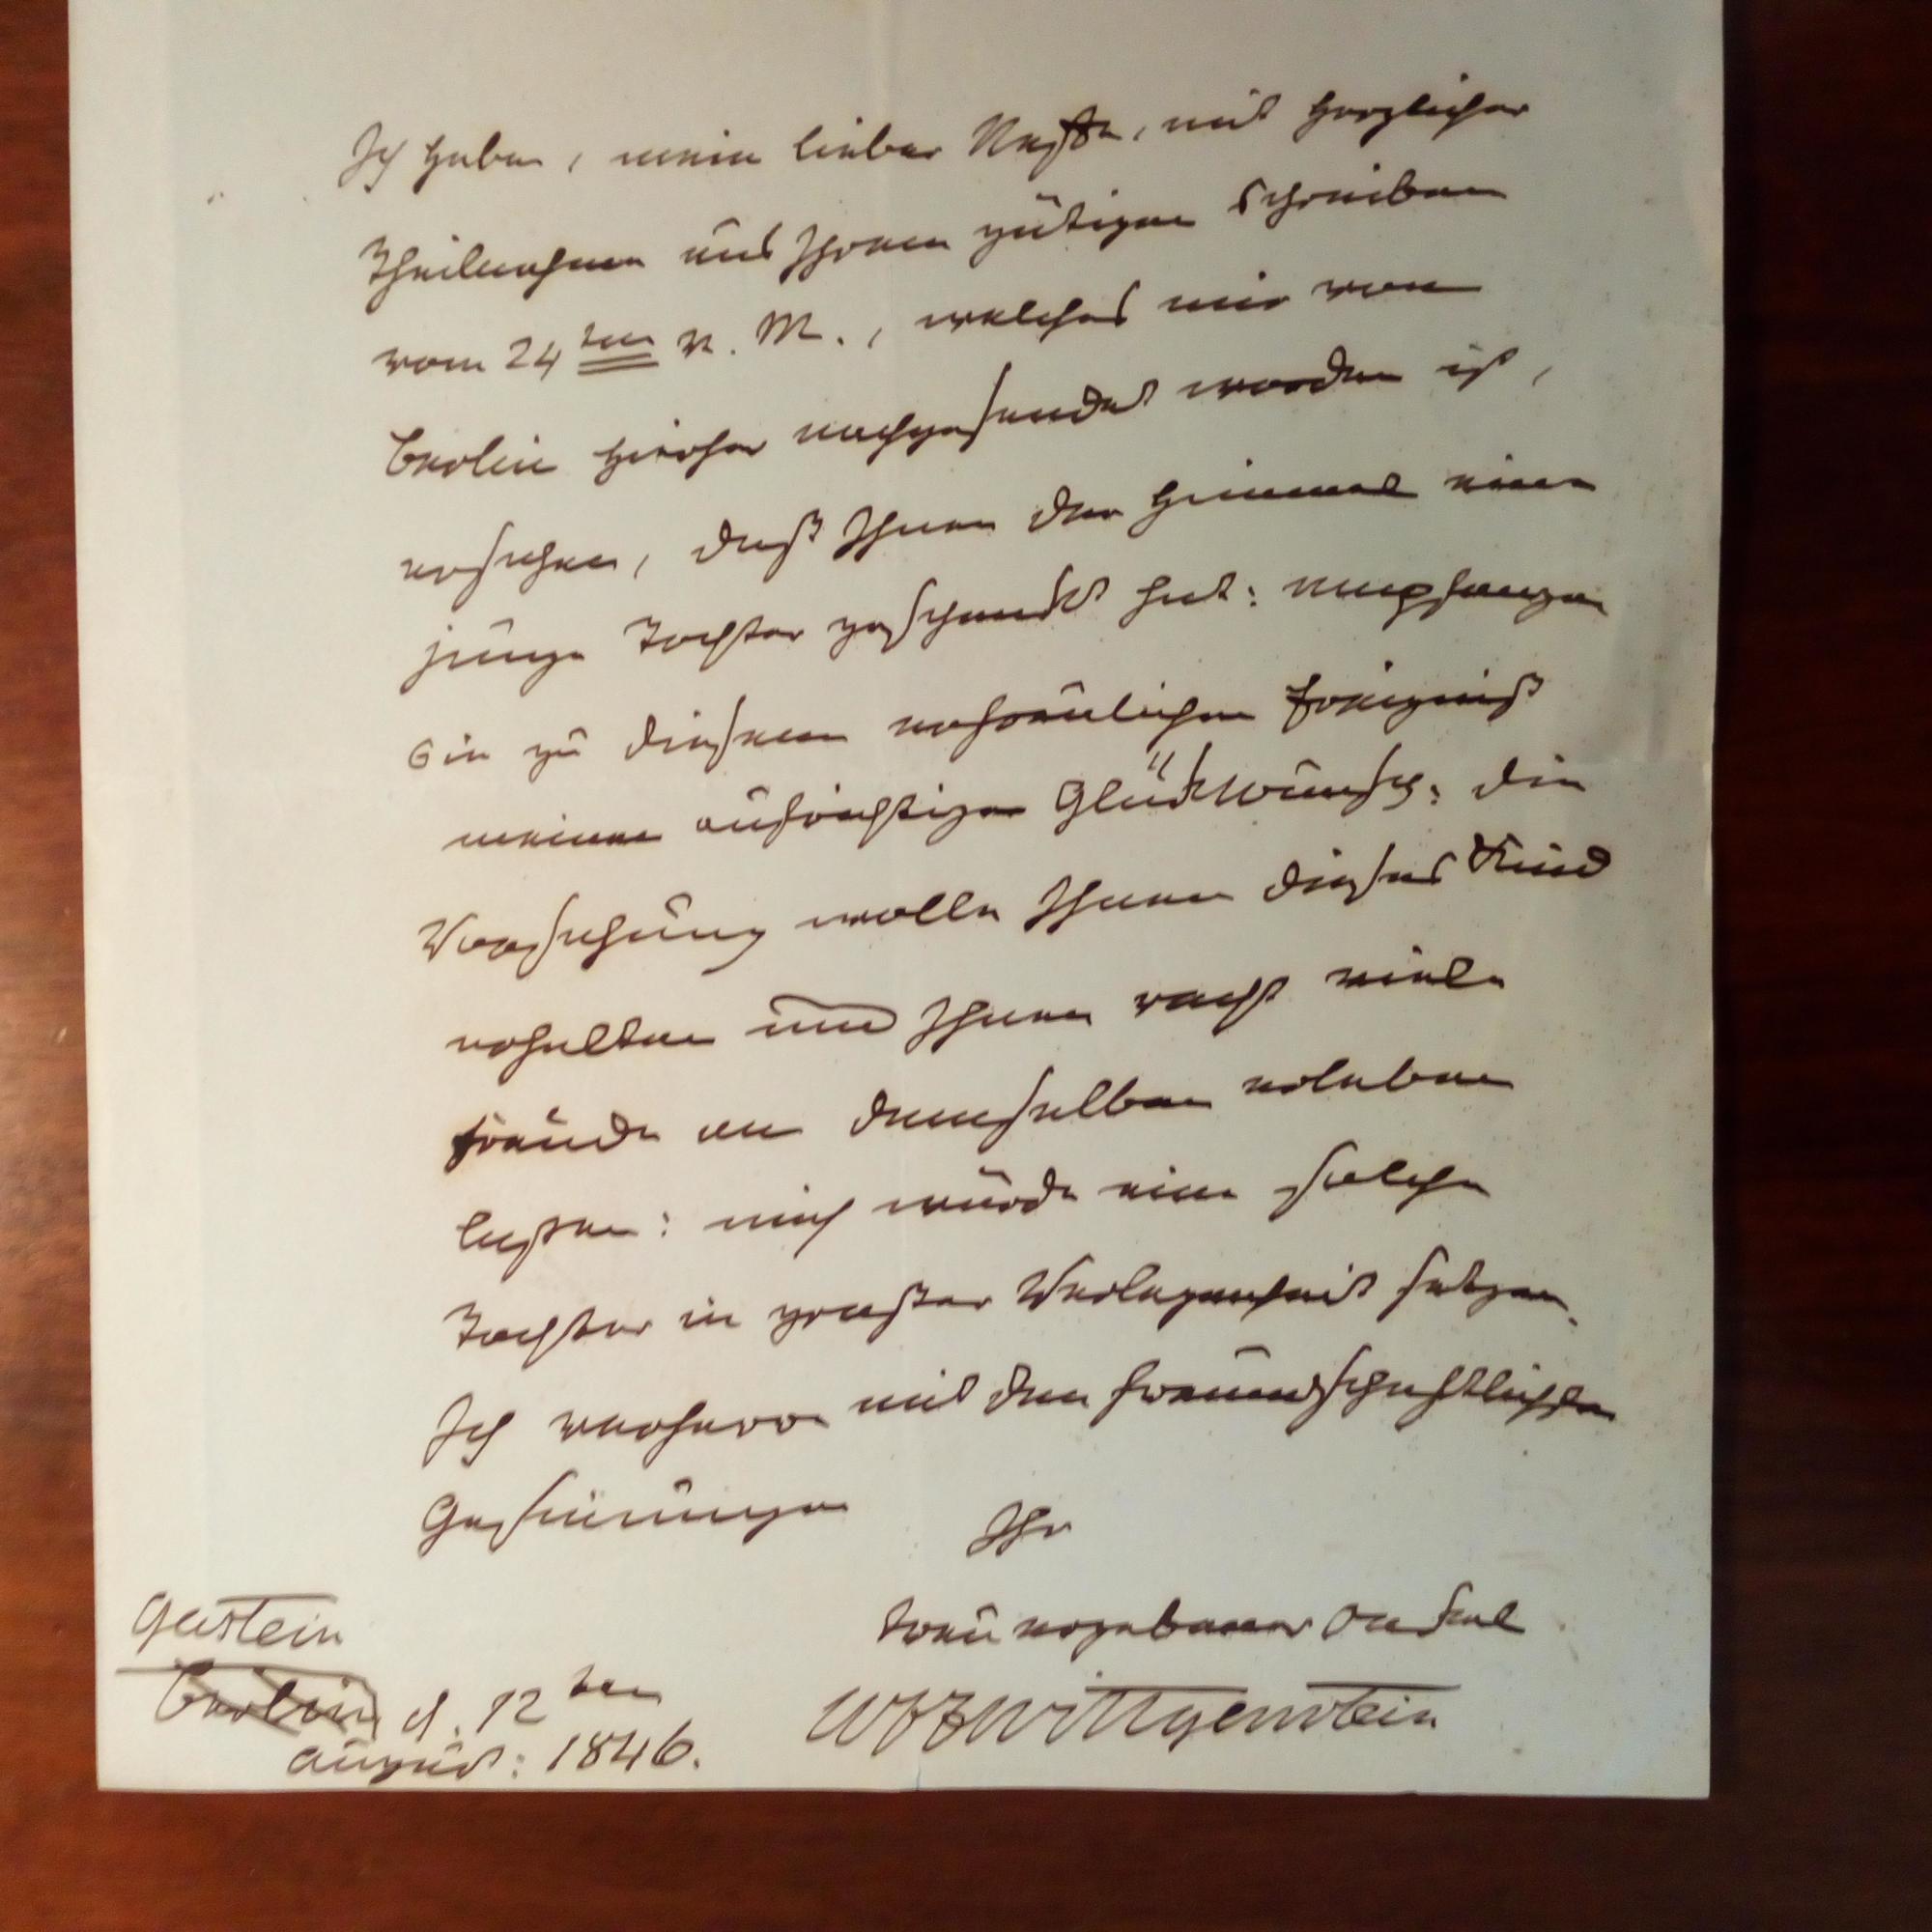 Ich habe, mein lieber Neffe, mit herzlicher
Theilnahme aus Ihrem gütigen Schreiben
vom 24ten v. M., welches mir von
Berlin hierher nachgesendet worden ist,
ersehen, daß Ihnen der Himmel eine
junge Tochter geschenkt hat: empfangen
Sie zu diesem erfreulichen Ereigniß
meinen aufrichtigen Glückwunsch: die
Vorsehung wolle Ihnen dieses Kind
erhalten und Ihnen recht viele
Freude an demselben erleben
laßen: mich würde eine solche
Tochter in großer Verlegenheit setzen.
Ich verharre mit den freundschaftlichsten
Gesinnungen
Ihr
treu ergebener Onkel
WFZWittgenstein
Gastein
Berlin d. 12ten
August: 1846.